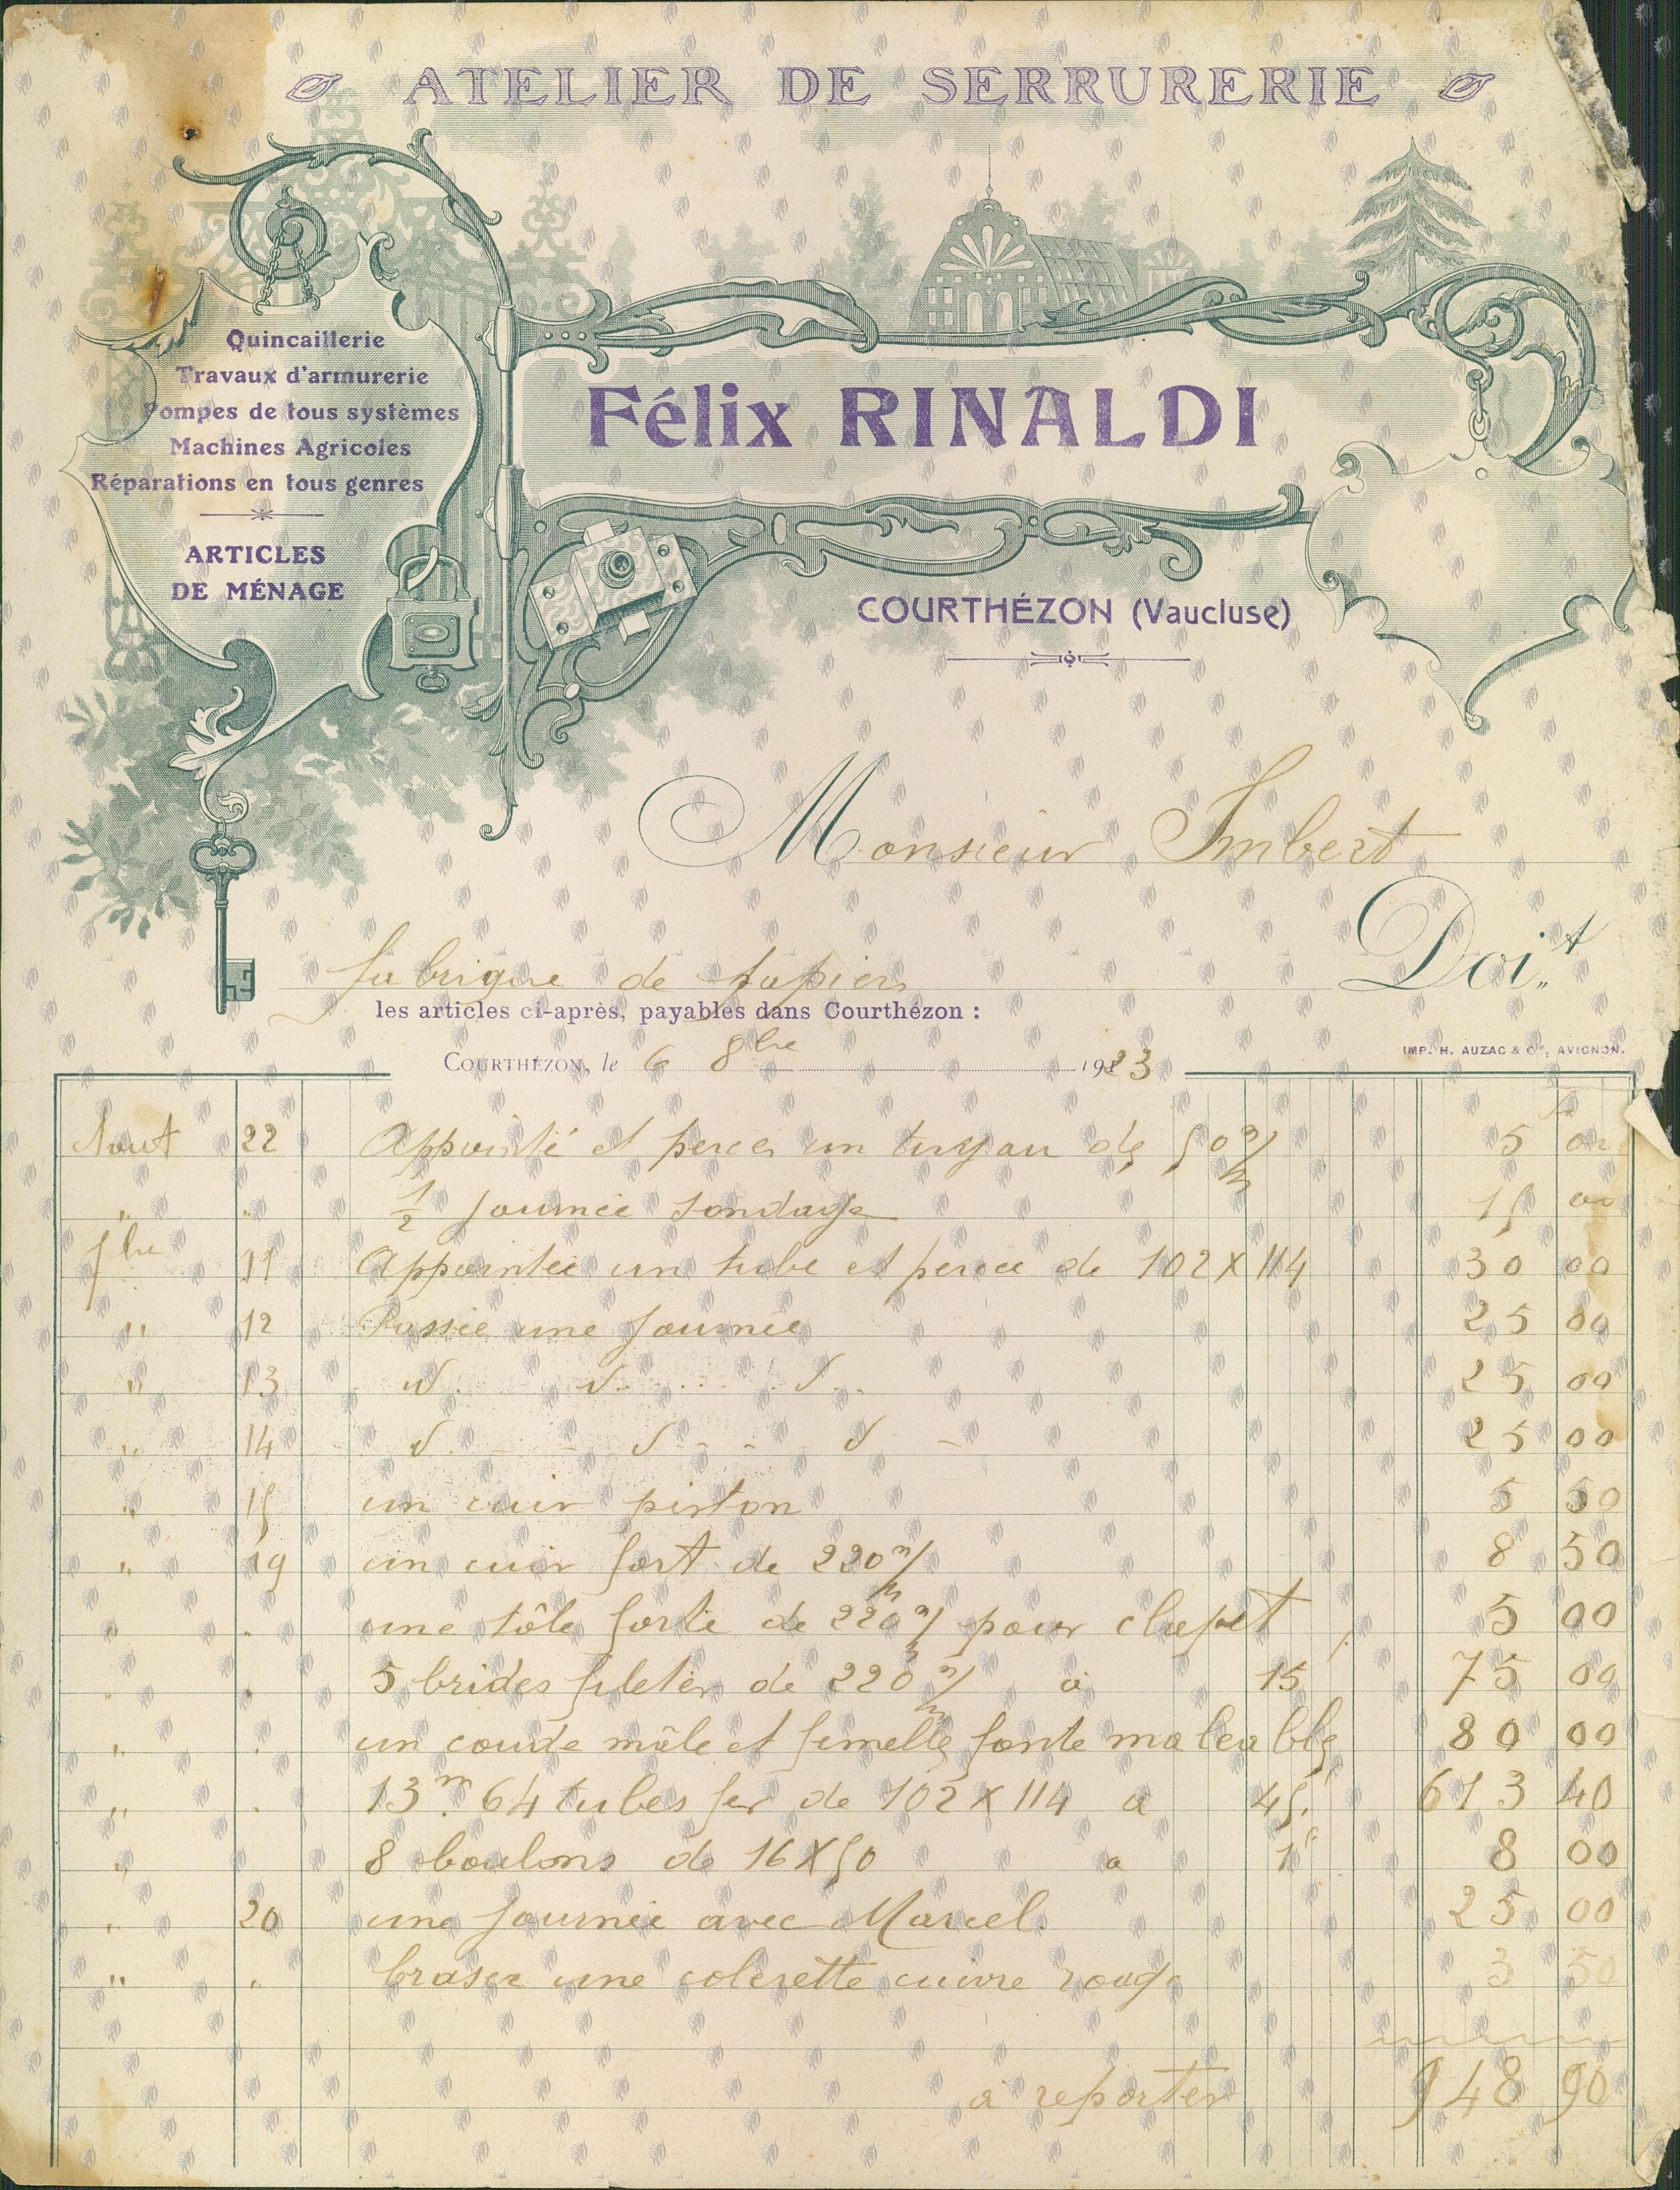 ATELIER DE SERRURERIE
Quincaillerie
Travaux d'armurerie
Pompes de tous systèmes
Machines Agricoles
Réparations en tous genres
ARTICLES
DE MÉNAGE
Félix RINALDI
COURTHÉZON (Vaucluse)
Monsieur Imbert
Doit
fabrique de papiers
les articles ci-après, payables dans Courthézon :
COURTHÉZON, le 6 8bre 1923
IMP. H. AUZAC & Cie, AVIGNON.
Aout 22 Appointé et percer un tuyau de 50 m/m 5 00
" " 1/2 journée sondage 15 00
7bre 11 Appointée un tube et percée de 102 X 114 30 00
" 12 Passée une journée 25 00
" 13 d d d 25 00
" 14 d d d 25 00
" 15 un cuir piston 5 50
" 19 un cuir fort de 220 m/m 8 50
" " une tôle forte de 220 m/m pour clapet 5 00
" " 5 brides fileter de 220 m/m à 15 75 00
" " un coude mâle et femelle fonte maleable 80 00
" " 13m.64 tubes fer de 102 X 114 a 45f 613 40
" 8 boulons de 16 X 50 a 1f 8 00
" 20 une journée avec Marcel. 25 00
" " braser une colerette cuivre rouge 3 50
à reporter 948 90